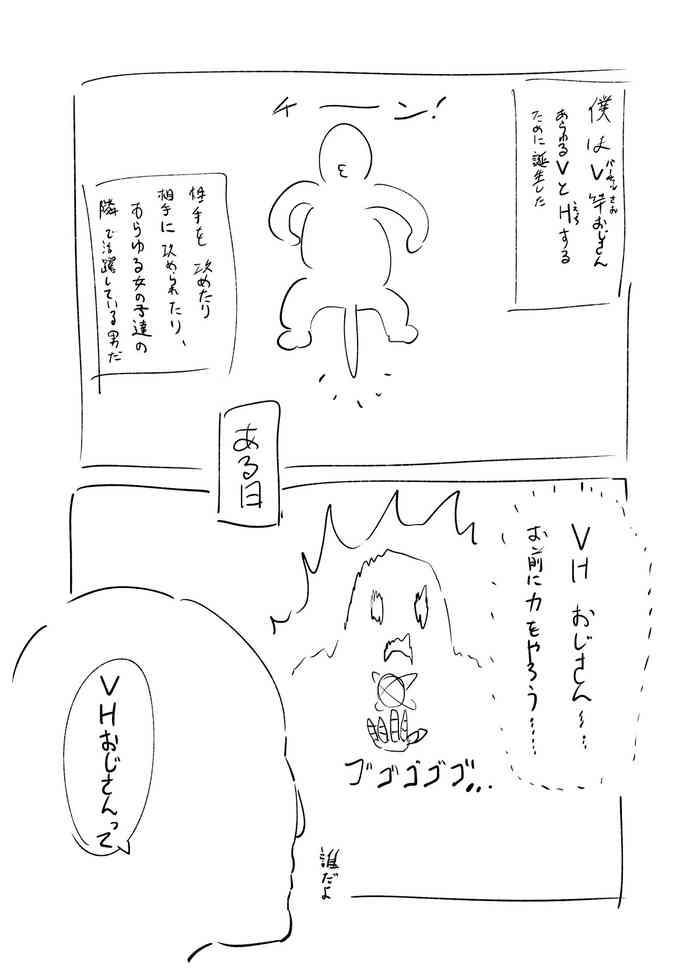 僕はV竿おじさん
バーチャルさお
あらゆるVとHする
えっち
ために誕生した
チーン!
任手を攻めたり
相手に攻められたり、
あらゆる女の子達の
隣で活躍している男だ
ある日
VHおじさん……
お前に力をやろう……
ゴゴゴゴゴ…
VHおじさんって
誰だよ